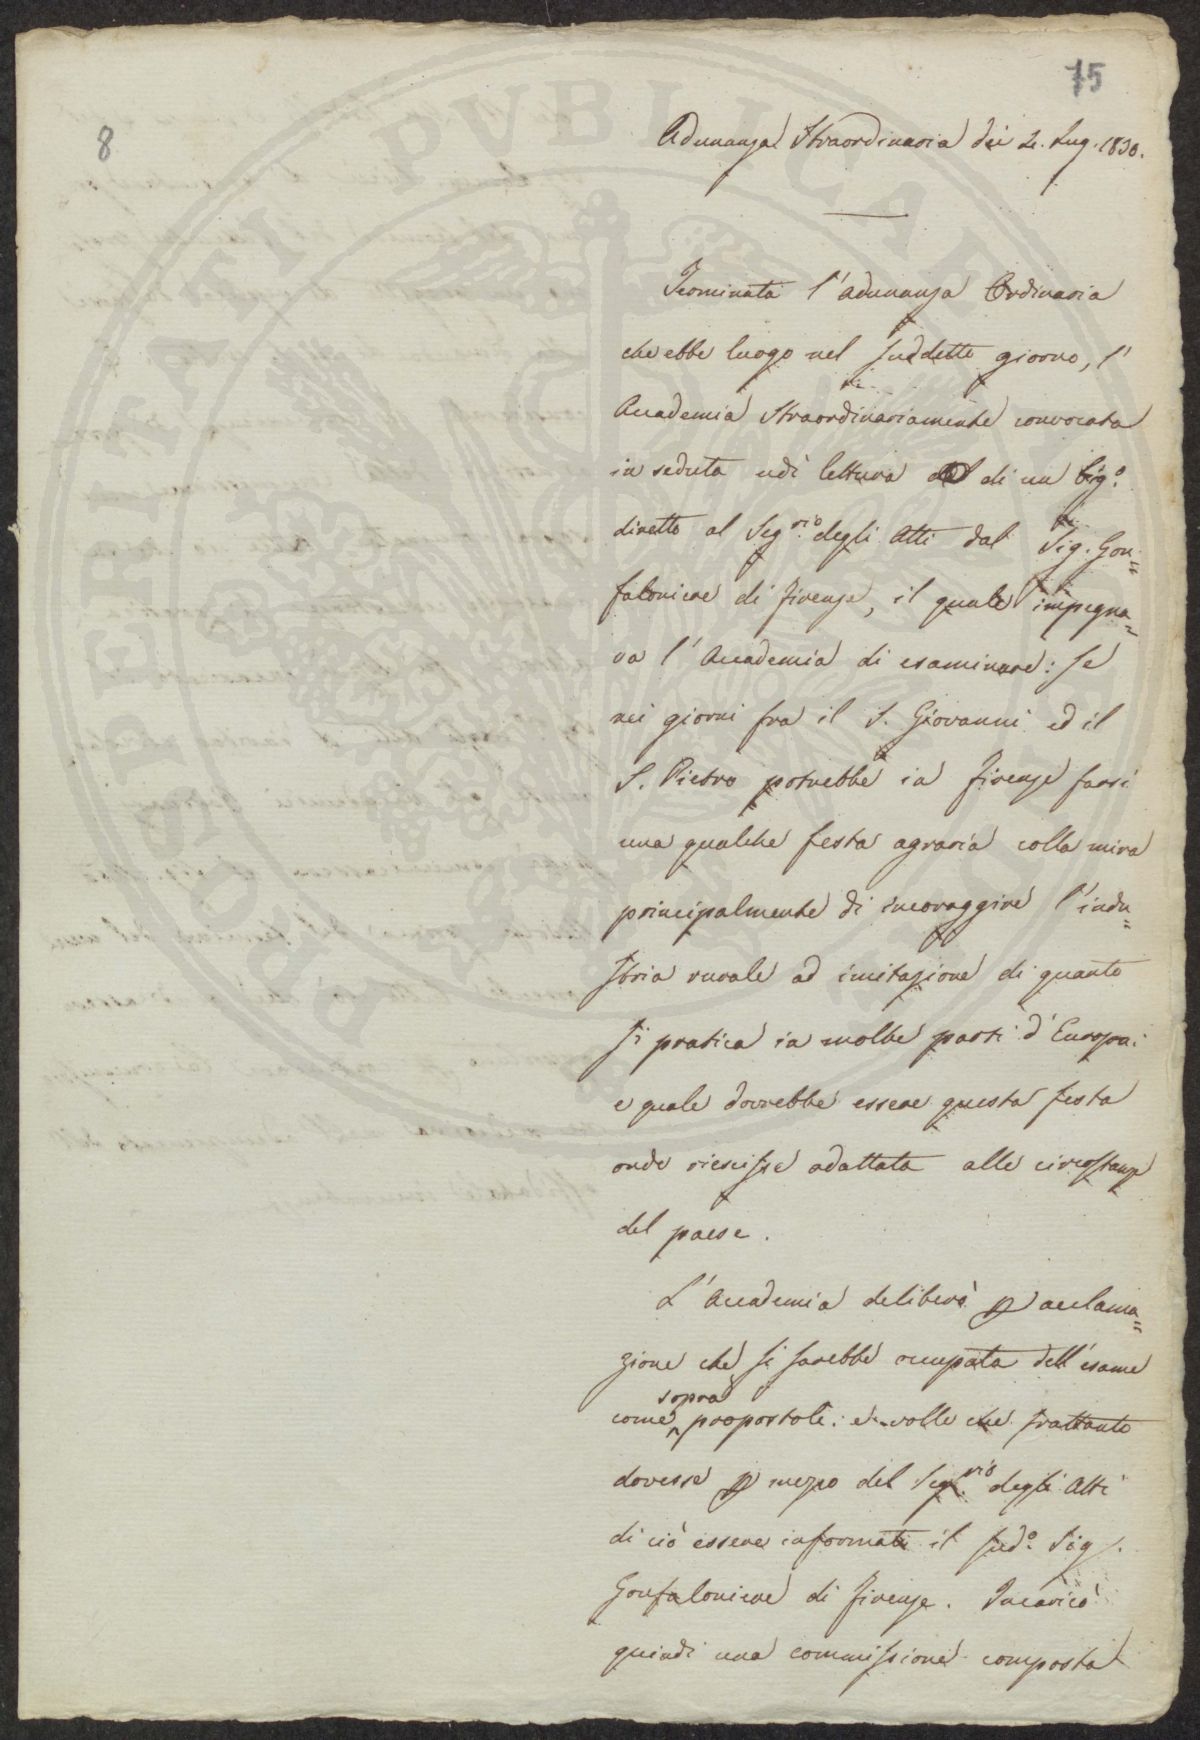 75
8
Adunanza Straordinaria dei 2. Lug. 1830.
Terminata l'adunanza Ordinaria
che ebbe luogo nel suddetto giorno, l'
Accademia straordinariamente convocata
in seduta udì lettura di un big.º
diretto al Seg.rio degli Atti dal Sig. Gon=
faloniere di Firenze, il quale impegna=
va l'Accademia di esaminare: se
nei giorni fra il S. Giovanni ed il
S. Pietro potrebbe in Firenze farsi
una qualche festa agraria colla mira
principalmente di incoraggire l'indu=
stria rurale ad imitazione di quanto
si pratica in molte parti d'Europa:
e quale dovrebbe essere questa festa
onde riescisse adattata alle circostanze
del paese.
L'Accademia deliberò p acclama=
zione che si sarebbe occupata dell'esame
sopra
come propostole: e volle che frattanto
dovesse p mezzo del Seg.rio degli Atti
di ciò essere informato il sud.º Sig.
Gonfaloniere di Firenze. Incaricò
quindi una commissione composta
PROSPERITATI PVBLICAE